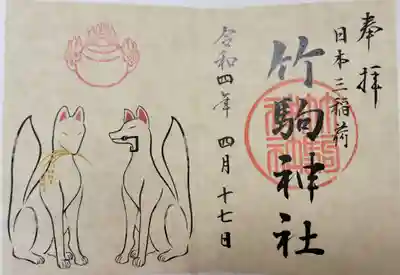 奉拝
日本三稲荷
竹駒神社
令和四年 四月十七日